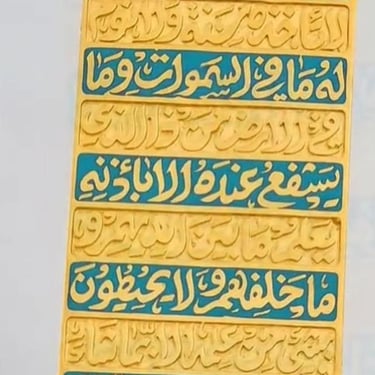 لا تأخذه سنة ولا نوم
له ما في السموات وما
في الارض من ذا الذي
يشفع عنده الا باذنه
يعلم ما بين ايديهم و
ما خلفهم ولا يحيطون
بشيء من علمه الا بما شاء